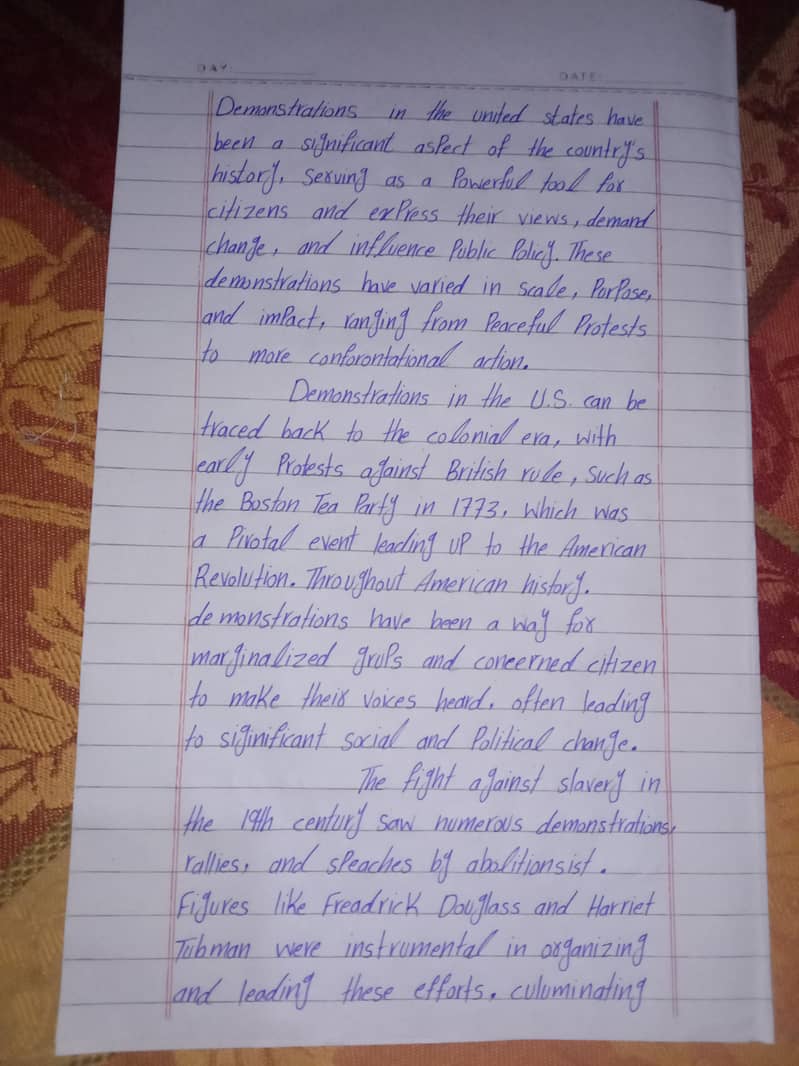 DAY:
DATE:
Demonstrations in the united states have
been a significant aspect of the country's
history, serving as a Powerful tool for
citizens and exPress their views, demand
change, and influence Public Policy. These
demonstrations have varied in scale, PorPose,
and imPact, ranging from Peaceful Protests
to more conforontational action.
Demonstrations in the U.S. can be
traced back to the colonial era, with
early Protests against British rule, such as
the Boston Tea Party in 1773, which was
a Pivotal event leading uP to the American
Revolution. Throughout American history.
demonstrations have been a way for
marginalized gruPs and concerned citizen
to make their voices heard, often leading
to siginificant social and Political change.
The fight against slavery in
the 19th century saw numerous demonstrations,
rallies, and sPeaches by abolitionsist.
Figures like Freadrick Douglass and Harriet
Tubman were instrumental in organizing
and leading these efforts, culuminating